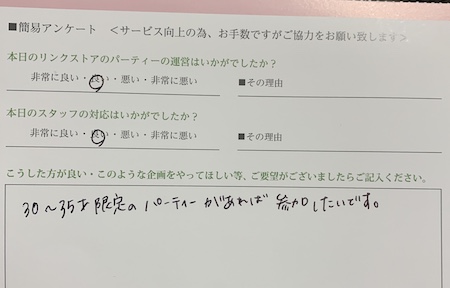 ■簡易アンケート ＜サービス向上の為、お手数ですがご協力をお願い致します＞
本日のリンクストアのパーティーの運営はいかがでしたか？
非常に良い・良い・悪い・非常に悪い ■その理由
本日のスタッフの対応はいかがでしたか？
非常に良い・良い・悪い・非常に悪い ■その理由
こうした方が良い・このような企画をやってほしい等、ご要望がございましたらご記入ください。
30〜35才限定のパーティーがあれば参加したいです。